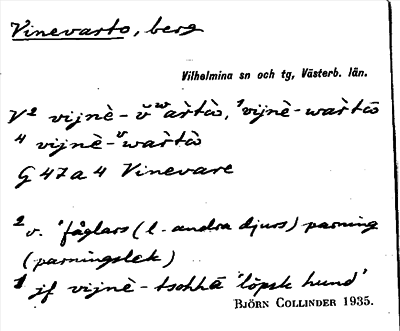 Vinevarto, berg
Vilhelmina sn och tg, Västerb. län.
V² vijnè-ŭʷàrtò, ¹vijnè-wàrtō
⁴ vijnè-ᵘwàrtò
G 47 a 4 Vinevare
² v. 'fåglars (l. andra djurs) parning
(parningslek)
¹ jf vijnè-tsohhā 'löpsk hund'
BJÖRN COLLINDER 1935.